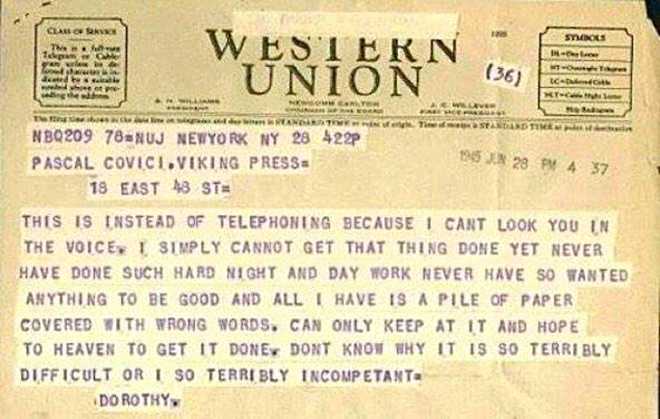 CLASS OF SERVICE
This is a full-rate
Telegram or Cable-
gram unless its de-
ferred character is in-
dicated by a suitable
symbol above or pre-
ceding the address.
WESTERN
UNION
1220
(36)
A. N. WILLIAMS
PRESIDENT
NEWCOMB CARLTON
CHAIRMAN OF THE BOARD
J. C. WILLEVER
FIRST VICE-PRESIDENT
SYMBOLS
DL=Day Letter
NT=Overnight Telegram
LC=Deferred Cable
NLT=Cable Night Letter
Ship Radiogram
The filing time shown in the date line on telegrams and day letters is STANDARD TIME at point of origin. Time of receipt is STANDARD TIME at point of destination
NBQ209 78=NUJ NEWYORK NY 28 422P
PASCAL COVICI,VIKING PRESS=
1945 JUN 28 PM 4 37
18 EAST 48 ST=
THIS IS INSTEAD OF TELEPHONING BECAUSE I CANT LOOK YOU IN
THE VOICE. I SIMPLY CANNOT GET THAT THING DONE YET NEVER
HAVE DONE SUCH HARD NIGHT AND DAY WORK NEVER HAVE SO WANTED
ANYTHING TO BE GOOD AND ALL I HAVE IS A PILE OF PAPER
COVERED WITH WRONG WORDS. CAN ONLY KEEP AT IT AND HOPE
TO HEAVEN TO GET IT DONE. DONT KNOW WHY IT IS SO TERRIBLY
DIFFICULT OR I SO TERRIBLY INCOMPETANT=
DOROTHY.